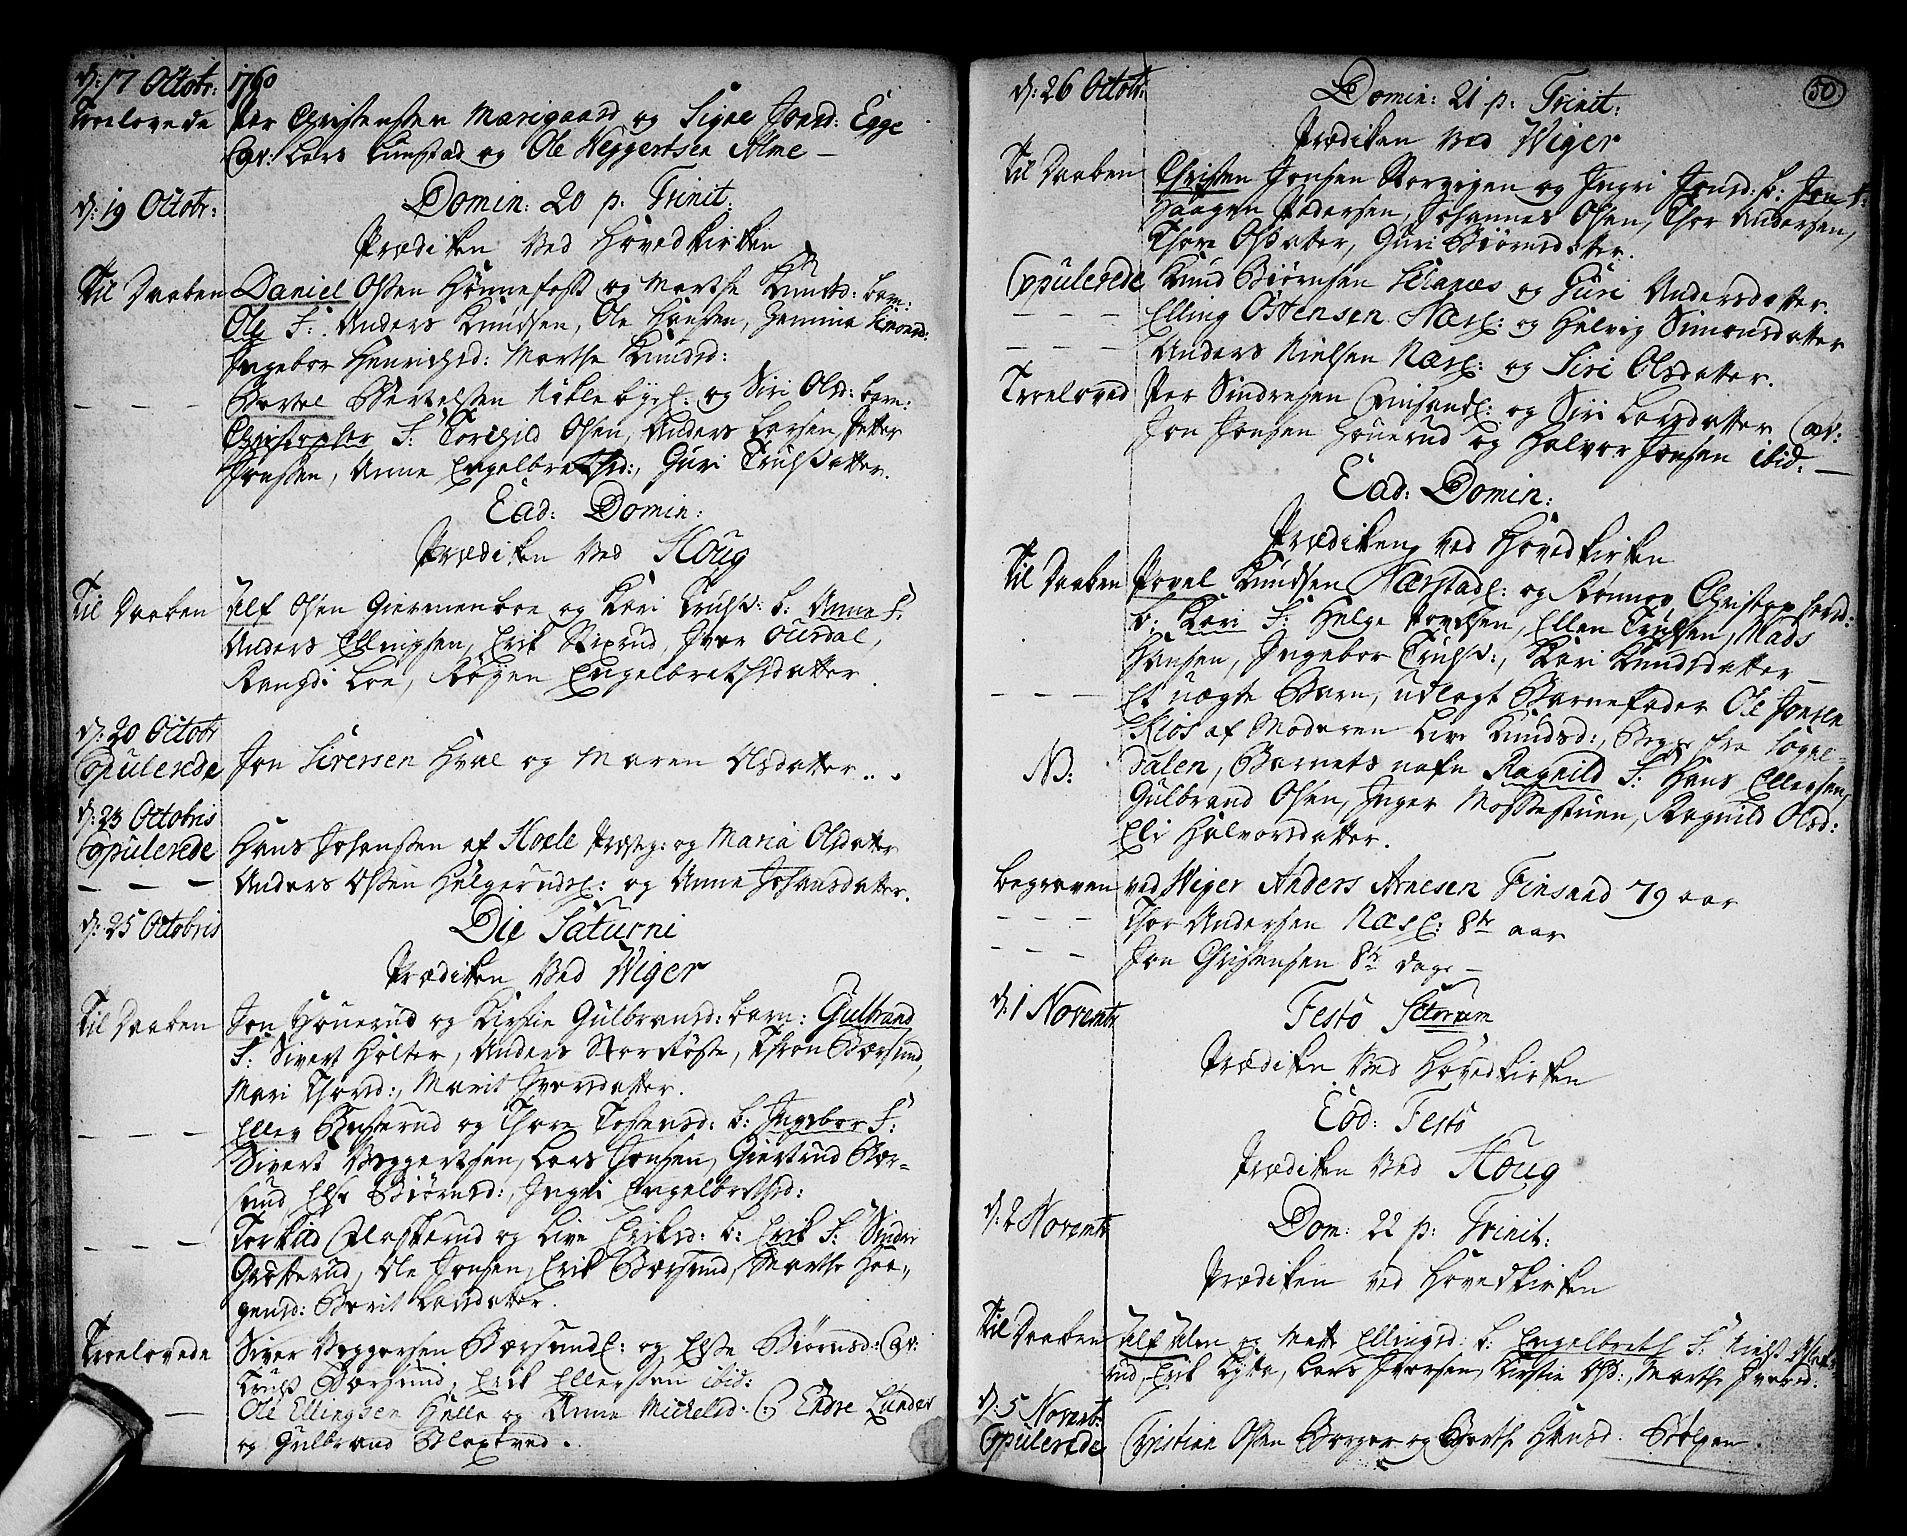 d: 17 Octobr: 1760
Troelovede Per Christensen Moesgaard og Signe Jonsd: Egge
Cav: Lars Lunstad og Ole Weggertsen Alme –
d: 19 Octobr: Domin: 20 p: Trinit:
Prædiken ved Hovedkirken
Til Daaben Daniel Olsen Hønnefoss og Marthe Knudsd: barn:
Ole F: Anders Knudsen, Ole Hansen, Gemina Simonsd:
Ingebor Henrichsd: Marthe Knudsd:
– – – Bertel Bertelsen og Siri Olsd: barn:
Christopher F: Torchild Olsen, Anders Larsen, Petter
Jonsen, Anne Engelbretsd:, Guri Trulsdatter.
Ead: Domin:
Prædiken ved Houg
Til Daaben Ulf Olsen Giermenboe og Kari Trulsd: b: Anna F:
Anders Ellingsen, Erik, Iver Oursdal,
Rangdi Loe, Røgen Engelbrethsdatter.
d: 20 Octobr
Copulerede Jon Siversen Hval og Maren Olsdatter..
d: 23 Octobris
Copulerede Hans Johansen af Hoele Præsteg: og Maria Olsdatter
– – – Anders Olsen HelgerudsE: og Anne Johansdatter.
d: 25 Octobris Die Saturni
Prædiken ved Wiger
Til Daaben Jon Houerud og Kirstie Gulbransd: barn: Gulbrand
F: Sivert Holter, Anders, Thron Bærsund,
Mari Thorsd:, Marit Iversdatter.
– – – Ellen og Thore Tostensd: b: Ingebor F:
Sivert Weggertsen, Lars Jonsen, Giertrud Bær-
sund Else Biørnsd:, Ingri Engelbretsd:
– – – Torkild Flaskerud og Live Eriksd: b: Erik F: Sindre
Ole Jonsen, Erik Bærsund, Marthe Haa-
gensd: Berit Larsdatter.
Troelovede Siver Weggersen BærsundE: og Else Biørnsd: Cav:
Truls Bærsund, Erik Ellensen ibid:
– Ole Ellingsen Helle og Anne Michelsd: C: Endre Lunder
og Gulbrand Bløxtved.
50
d: 26 Octobr: Domin: 21 p: Trinit:
Prædiken ved Wiger
Til Daaben Christen Jonsen og Ingri Jonsd: b: Jon F:
Haagen Pedersen, Johannes Olsen, Thor Andersen,
Thore Olsdatter, Guri Biørnsdatter.
Copulerede Knud Biørnsen og Guri Andersdatter.
– – – Elling Ostensen NæsE: og Helvig Simonsdatter
– – – Anders Nielsen NæsE: og Siri Olsdatter.
Troeloved Per Sindresen FinsandE: og Siri Larsdatter Cav:
Jon Jonsen Houerud og Halvor Jonsen ibid. –
Ead: Domin:
Prædiken ved Hovedkirken
Til Daaben Povel Knudsen NærstadE: og Rønnog Christophersd:
b: Kari F: Helge Povelsen, Ellen Trulsen, Mads
Hansen, Ingebor Trulsd:, Kari Knudsdatter –
– – – Et uægte Barn, udlagt Barnefader Ole Jonsen
Klos af Moderen Live Knudsd:, Begge fra Sogne-
NB: dalen, Barnets nafn Ragnild F: Hans Ellensen,
Gulbrand Olsen, Inger Mossestuen, Ragnild Olsd:
Eli Halvorsdatter.
Begraven ved Wiger Anders Arnesen Finsand 79 aar
– – – Thor Andersen NæsE: 8te aar
– – Jon Christensen 8te dage –
d: 1 Novembr Festo SSctorum
Prædiken ved Hovedkirken
Eod: Festo
Prædiken ved Houg
d: 2 Novembr Dom: 22 p: Trinit:
Prædiken ved Hovedkirken
Til Daaben Ulf og Mette Ellingsd: b: Engelbreth F: Niels
rud, Erik, Lars Iversen, Kirstie Olsd:, Marthe Iversd:
d: 5 Novembr:
Copulerede Christian Olsen og Berthe Hansd: